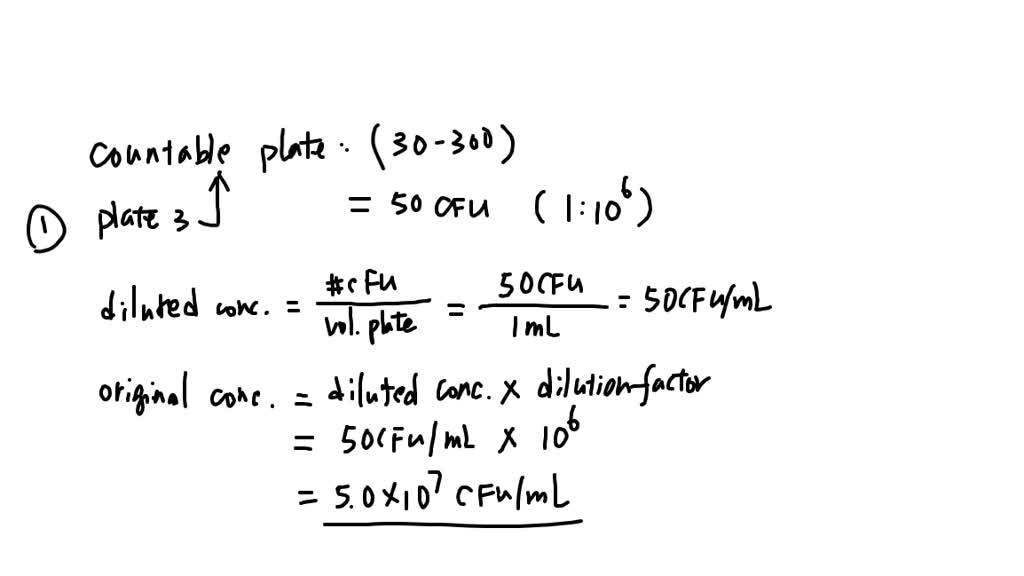 countable plate: (30-300)
① plate 3 = 50 CFU (1:10⁶)
diluted conc. = #CFU / vol. plate = 50CFU / 1mL = 50CFU/mL
original conc. = diluted conc. × dilution factor
= 50CFU/mL × 10⁶
= 5.0×10⁷ CFU/mL